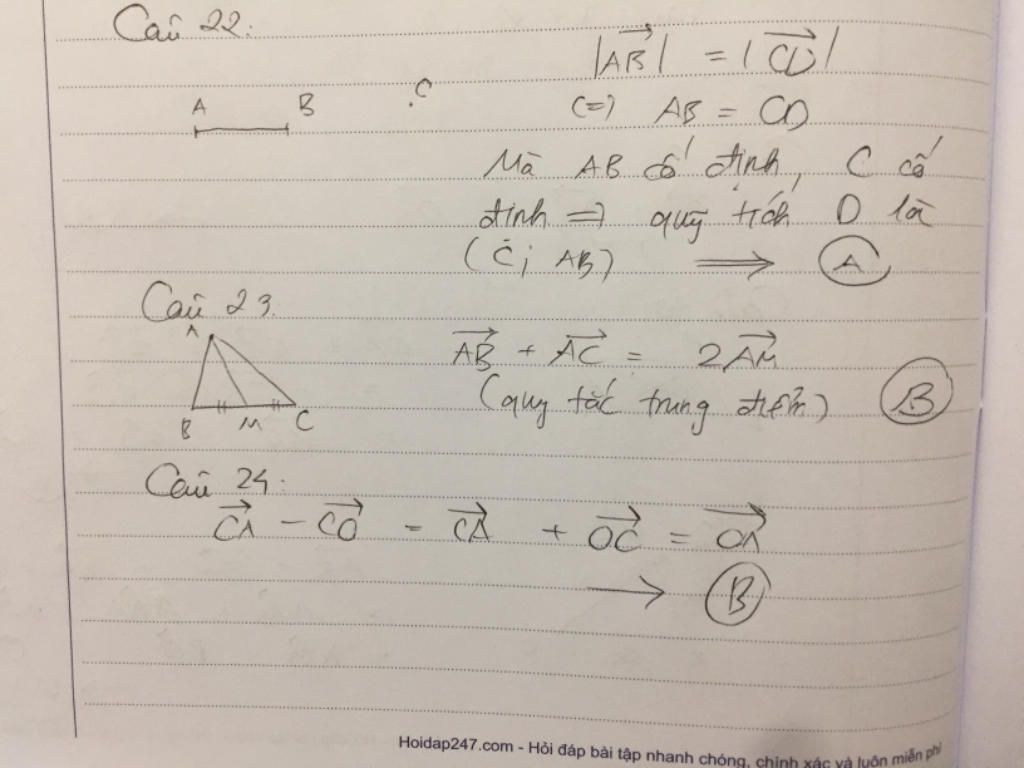 Câu 22:
A B C
|$\overrightarrow{AB}$| = |$\overrightarrow{CD}$|
<=> AB = CD
Mà AB cố định, C cố
định => quỹ tích D là
(C; AB) ⟹ A
Câu 23.
A
B M C
$\overrightarrow{AB}$ + $\overrightarrow{AC}$ = 2$\overrightarrow{AM}$
(quy tắc trung điểm) B
Câu 24:
$\overrightarrow{CA}$ − $\overrightarrow{CO}$ = $\overrightarrow{CA}$ + $\overrightarrow{OC}$ = $\overrightarrow{OA}$
⟶ B
Hoidap247.com - Hỏi đáp bài tập nhanh chóng, chính xác và luôn miễn phí